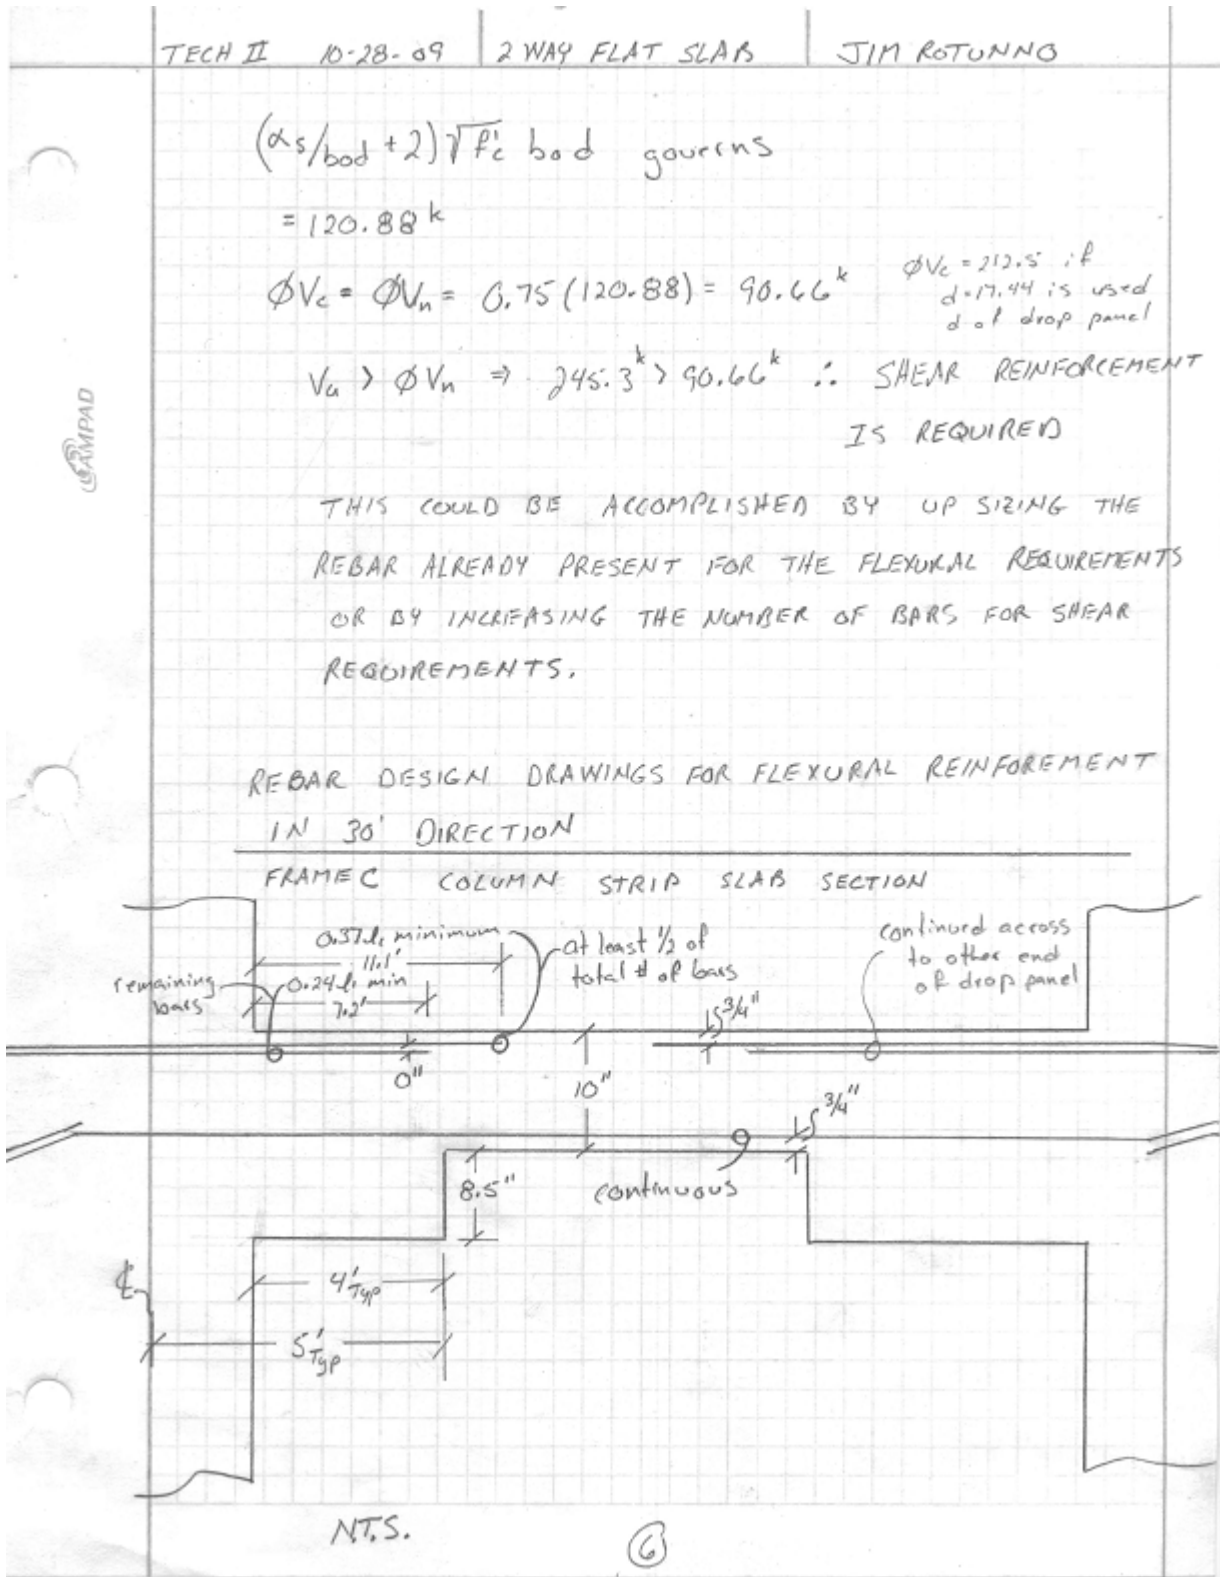 TECH II 10-28-09 2 WAY FLAT SLAB JIM ROTUNNO
(αs/bod + 2) √f'c bod governs
= 120.88 k
ØVc = ØVn = 0.75 (120.88) = 90.66 k
ØVc = 212.5 if
d=17.44 is used
d of drop panel
Vu > ØVn ⇒ 245.3 k > 90.66 k ∴ SHEAR REINFORCEMENT
IS REQUIRED
CAMPAD
THIS COULD BE ACCOMPLISHED BY UP SIZING THE
REBAR ALREADY PRESENT FOR THE FLEXURAL REQUIREMENTS
OR BY INCREASING THE NUMBER OF BARS FOR SHEAR
REQUIREMENTS.
REBAR DESIGN DRAWINGS FOR FLEXURAL REINFOREMENT
IN 30' DIRECTION
FRAME C COLUMN STRIP SLAB SECTION
0.37ln minimum
11.1'
at least 1/2 of
total # of bars
continued across
to other end
of drop panel
remaining
bars
0.24ln min
7.2'
3/4"
0"
10"
3/4"
8.5"
continuous
℄
4' Typ
5' Typ
N.T.S.
6